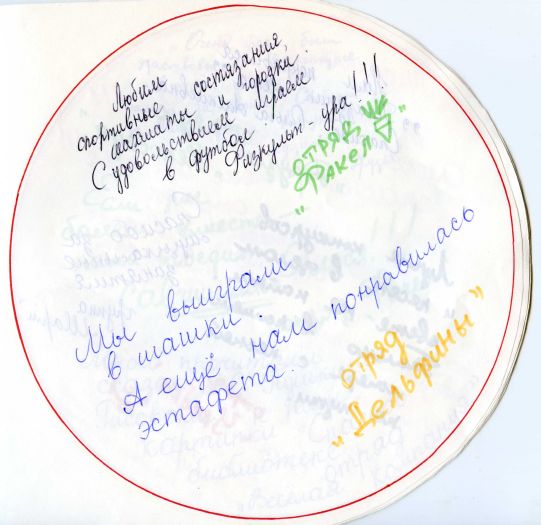 Любим
спортивные состязания,
шахматы и городки.
С удовольствием играем
в футбол.
Физкульт-ура!!!
отряд
"Факел"
Мы выиграли
в шашки.
А ещё нам понравилась
эстафета.
отряд
"Дельфины"